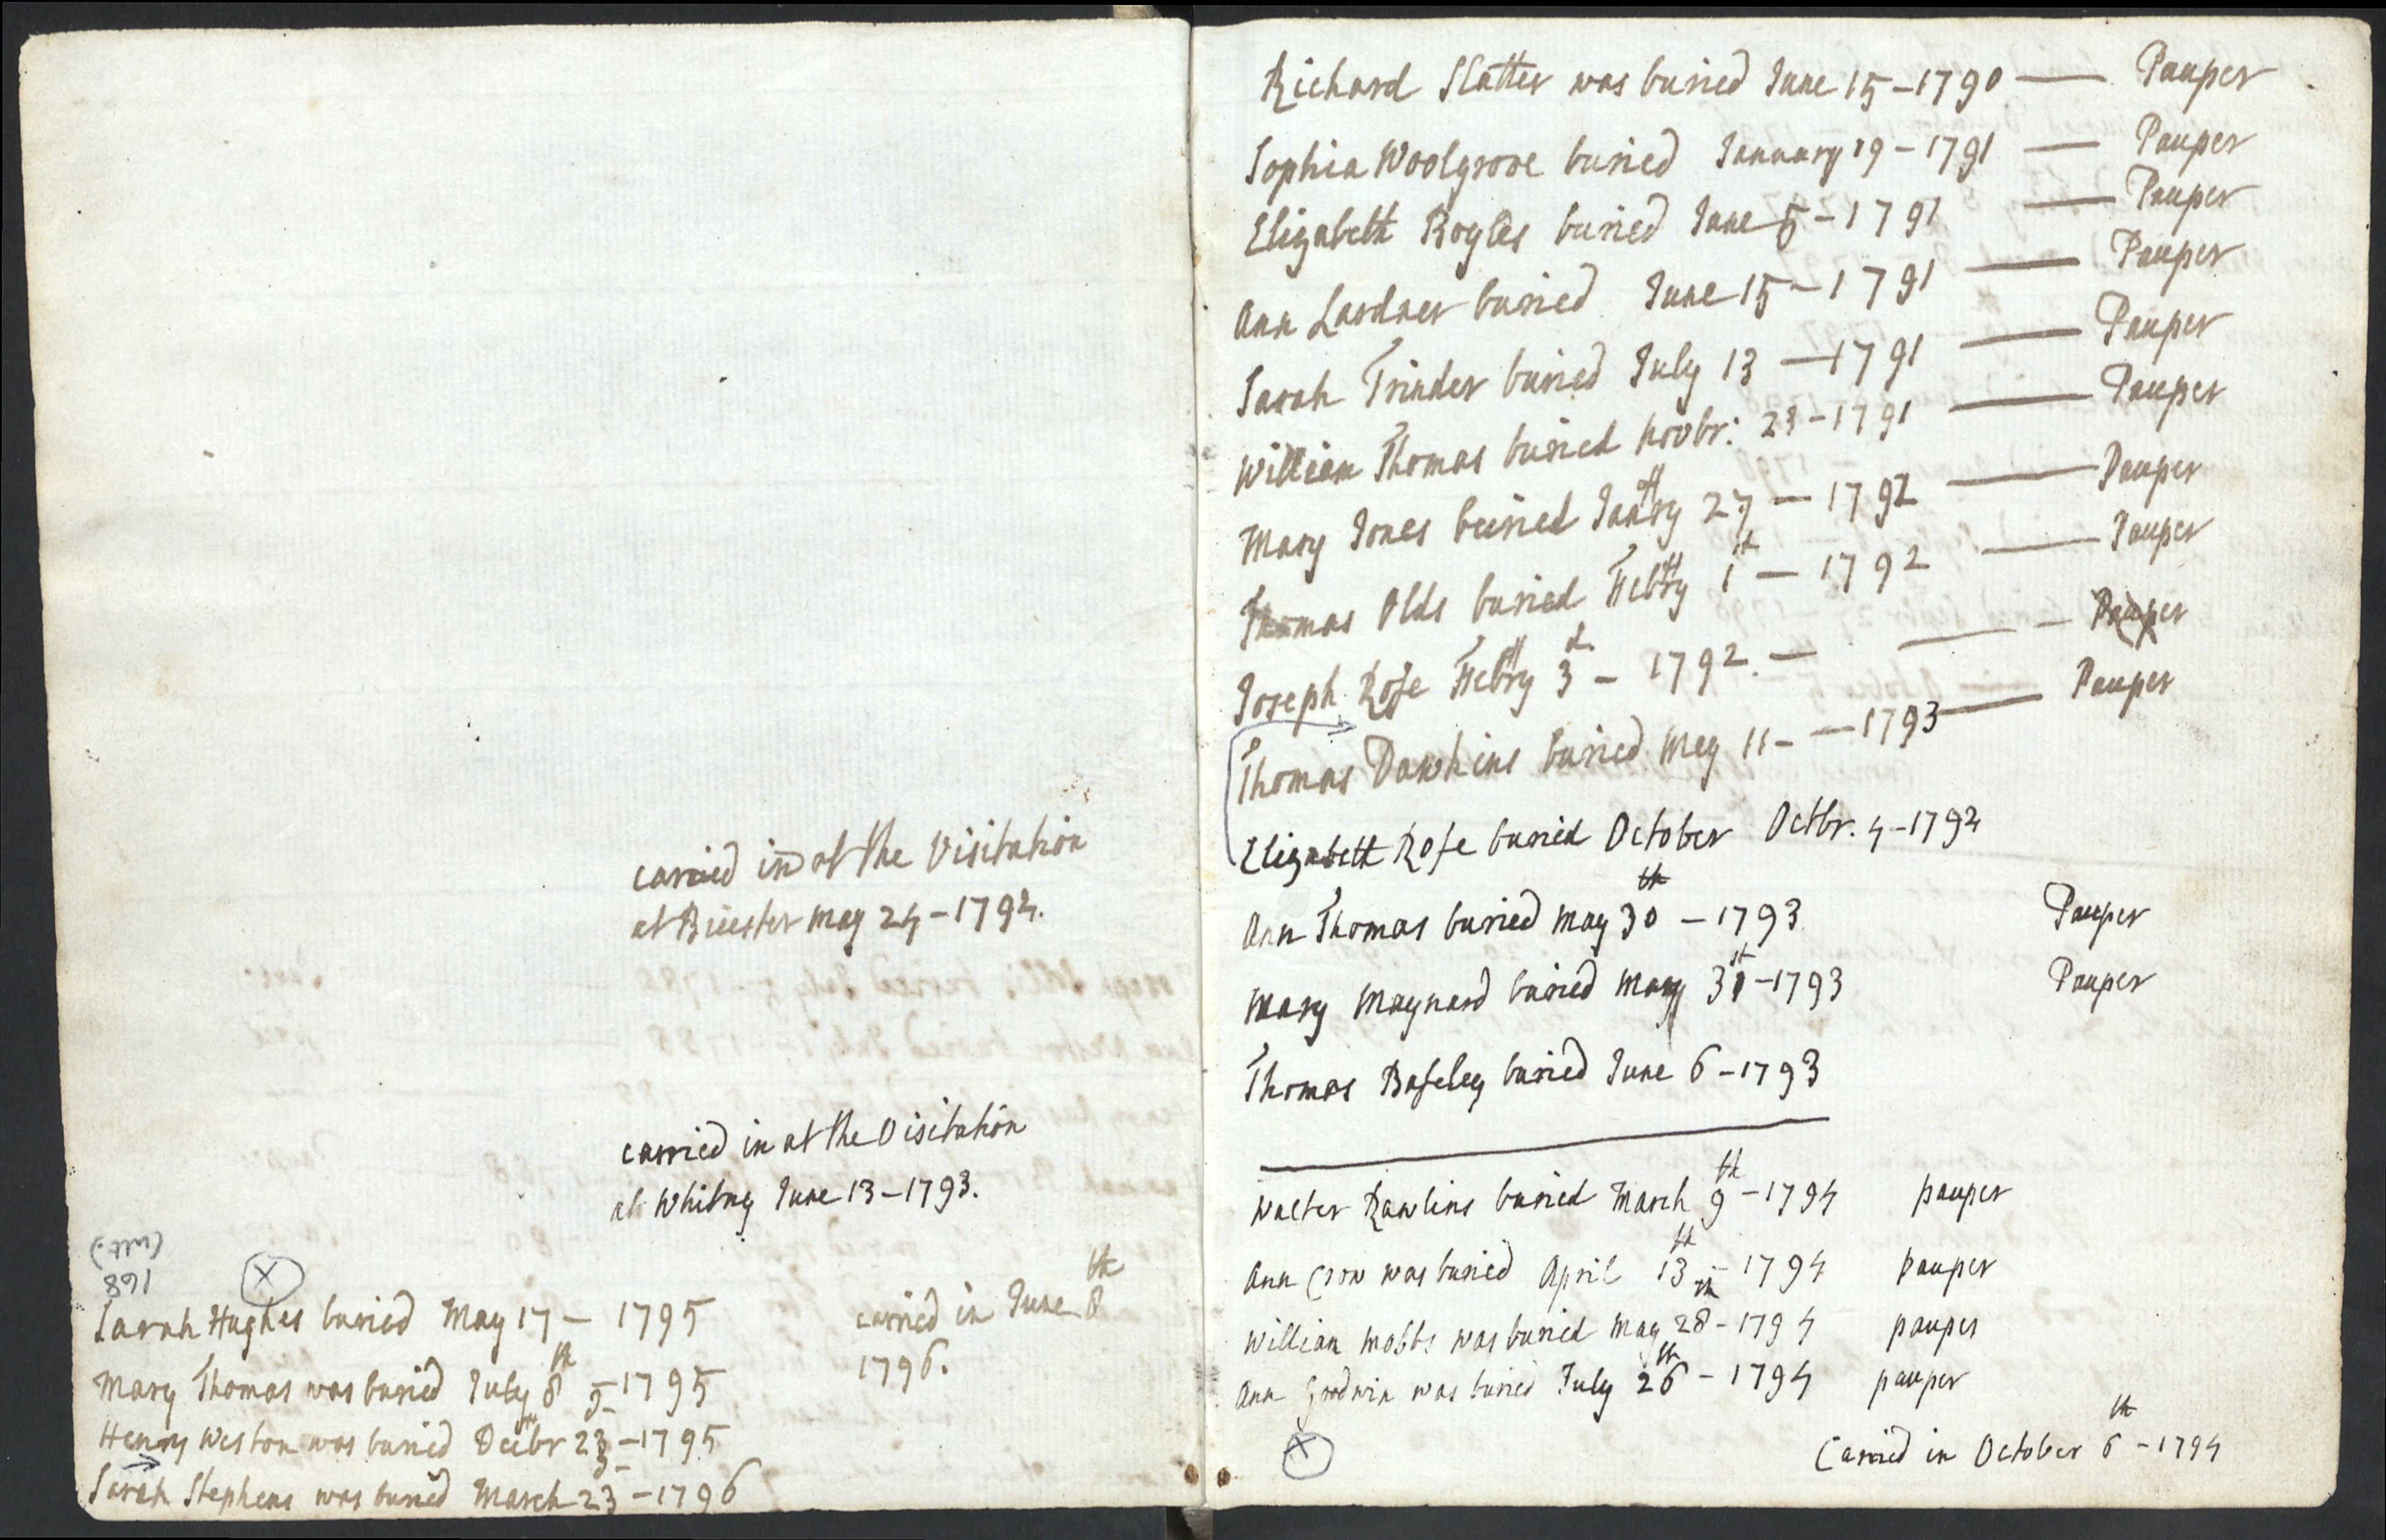 carried in at the Visitation
at Bicester May 24-1792.
carried in at the Visitation
at Whitney June 13-1793.
168
Sarah Hughes buried May 17 - 1795
carried in June 8th
1796.
Mary Thomas was buried July 8th - 1795
Henry Weston was buried Decbr 23 - 1795
Sarah Stephens was buried March 23 - 1796
Richard Slatter was buried June 15-1790 — Pauper
Sophia Woolgrove buried January 19-1791 — Pauper
Elizabeth Royles buried June 5-1791 — Pauper
Ann Lardner buried June 15-1791 — Pauper
Sarah Trinder buried July 13 -1791 — Pauper
William Thomas buried Novbr: 23-1791 — Pauper
Mary Jones buried Janry 27 - 1792 — Pauper
Thomas Olds buried Febry 1st - 1792 — Pauper
Joseph Rose Febry 3d - 1792. — Pauper
Thomas Dawkins buried May 11 - 1793 — Pauper
Elizabeth Rose buried October Octbr. 4-1792
Ann Thomas buried May 30th - 1793 Pauper
Mary Maynard buried May 31st-1793 Pauper
Thomas Baseley buried June 6-1793
Walter Rawlins buried March 9th-1794 pauper
Ann Crow was buried April 13th - 1794 pauper
William Mobbs was buried May 28th-1794 pauper
Ann Goodwin was buried July 26th - 1794 pauper
Carried in October 6th - 1794